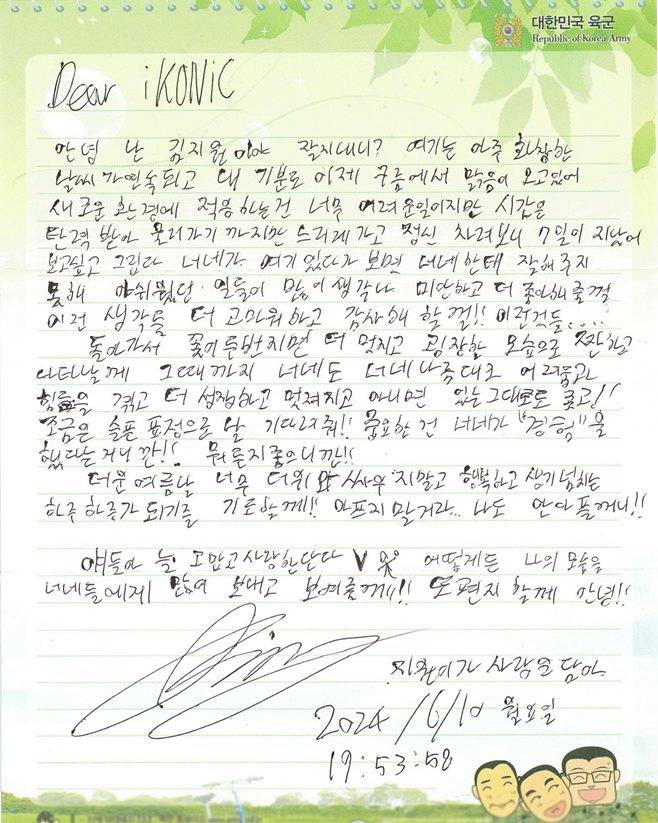 대한민국 육군
Republic of Korea Army
Dear iKONIC
안녕 난 김지원이야 잘지내니? 여기는 아주 화창한
날씨가 연속되고 내 기분도 이제 구름에서 맑음이 오고있어
새로운 환경에 적응하는건 너무 어려운일이지만 시간은
탄력 받아 굴러가기 까지만 드리게 가고 정신 차려보니 7일이 지났어
보고싶고 그립다 너네가 여기 있다가 보면 너네한테 잘해주지
못해 아쉬웠던 일들이 많이 생각나 미안하고 더 좋아해줄껄
이런 생각들 더 고마워하고 감사해 할껄!! 이런것들....
돌아가서 꽃이 두번지면 더 멋지고 굉장한 모습으로 짠하고
나타날게 그때까지 너네도 너네 나름대로 어려움과
힘듦을 겪고 더 성장하고 멋져지고 아니면 있는 그대로도 좋고!!
조금은 슬픈 표정으로 날 기다려줘!! 중요한 건 너네가 "경험"을
했다는거니깐!! 뭐든지 좋으니깐!!
더운 여름날 너무 더위와 싸우지말고 행복하고 생기 넘치는
하루 하루가 되기를 기도할께!! 아프지 말거라.. 나도 안아플꺼니!!
얘들아 늘 고맙고 사랑한단다 V 어떻게든 나의 모습을
너네들에게 많이 보내고 보여줄께!! 또 편지 할께 안녕!!
지원이가 사랑을 담아
2024/6/10 월요일
19:53:58